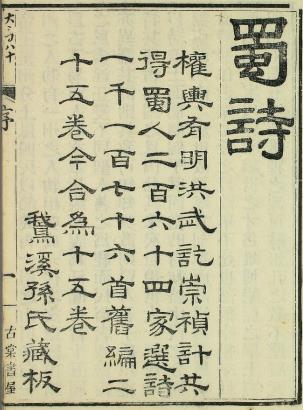 蜀詩
權輿有明洪武訖崇禎計共
得蜀人二百六十四家選詩
一千一百七十六首舊編二
十五卷今合為十五卷
鵞溪孫氏藏板
序
一
古棠書屋